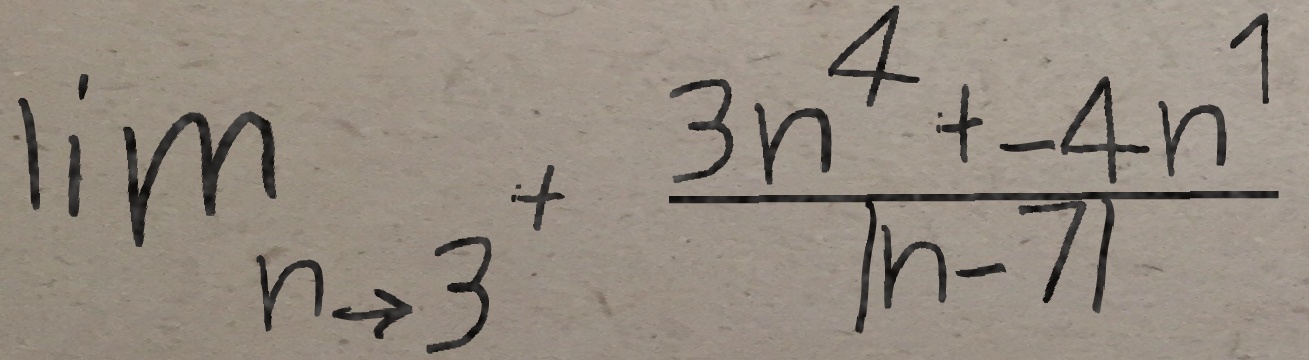 \lim_{n \to 3^+} \frac{3n^4 + -4n^1}{|n-7|}